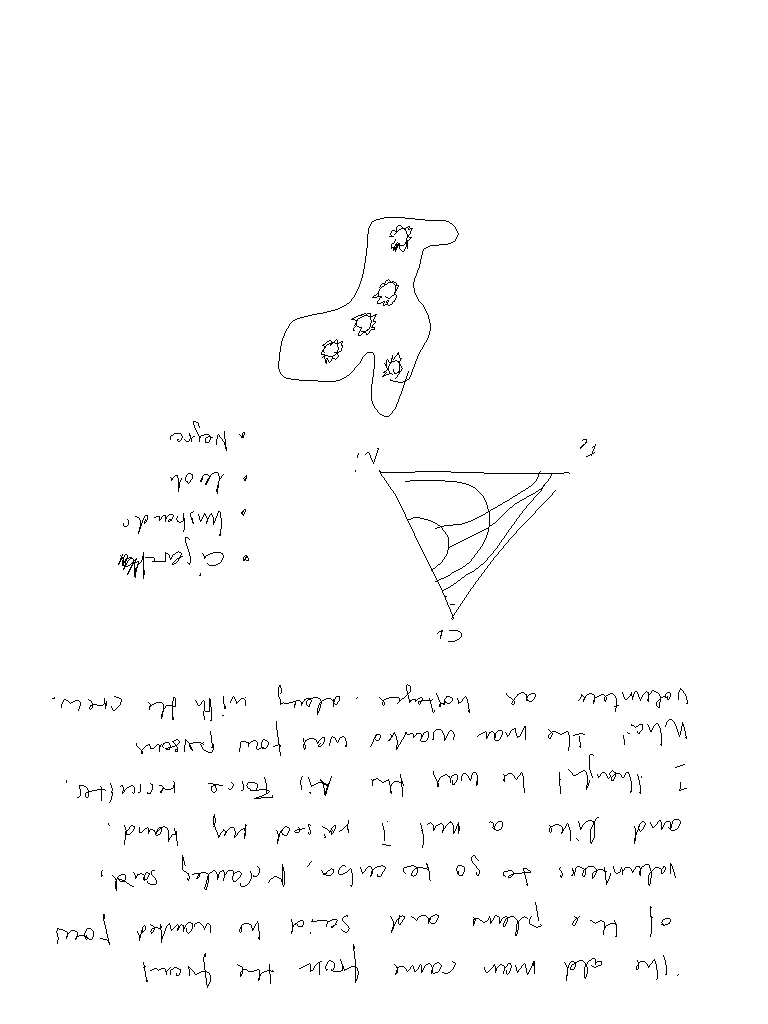 The old man came from the front
of the plane and said he wanted four
volunteers to go to cuba, said,
and like a nut I raised my hand.
I thought he was the Air Force recruiter.
What the man wanted was four persons
volunteer as hostages. along with the crew.
Cu
Fe
Ni
• Leon
• Negre